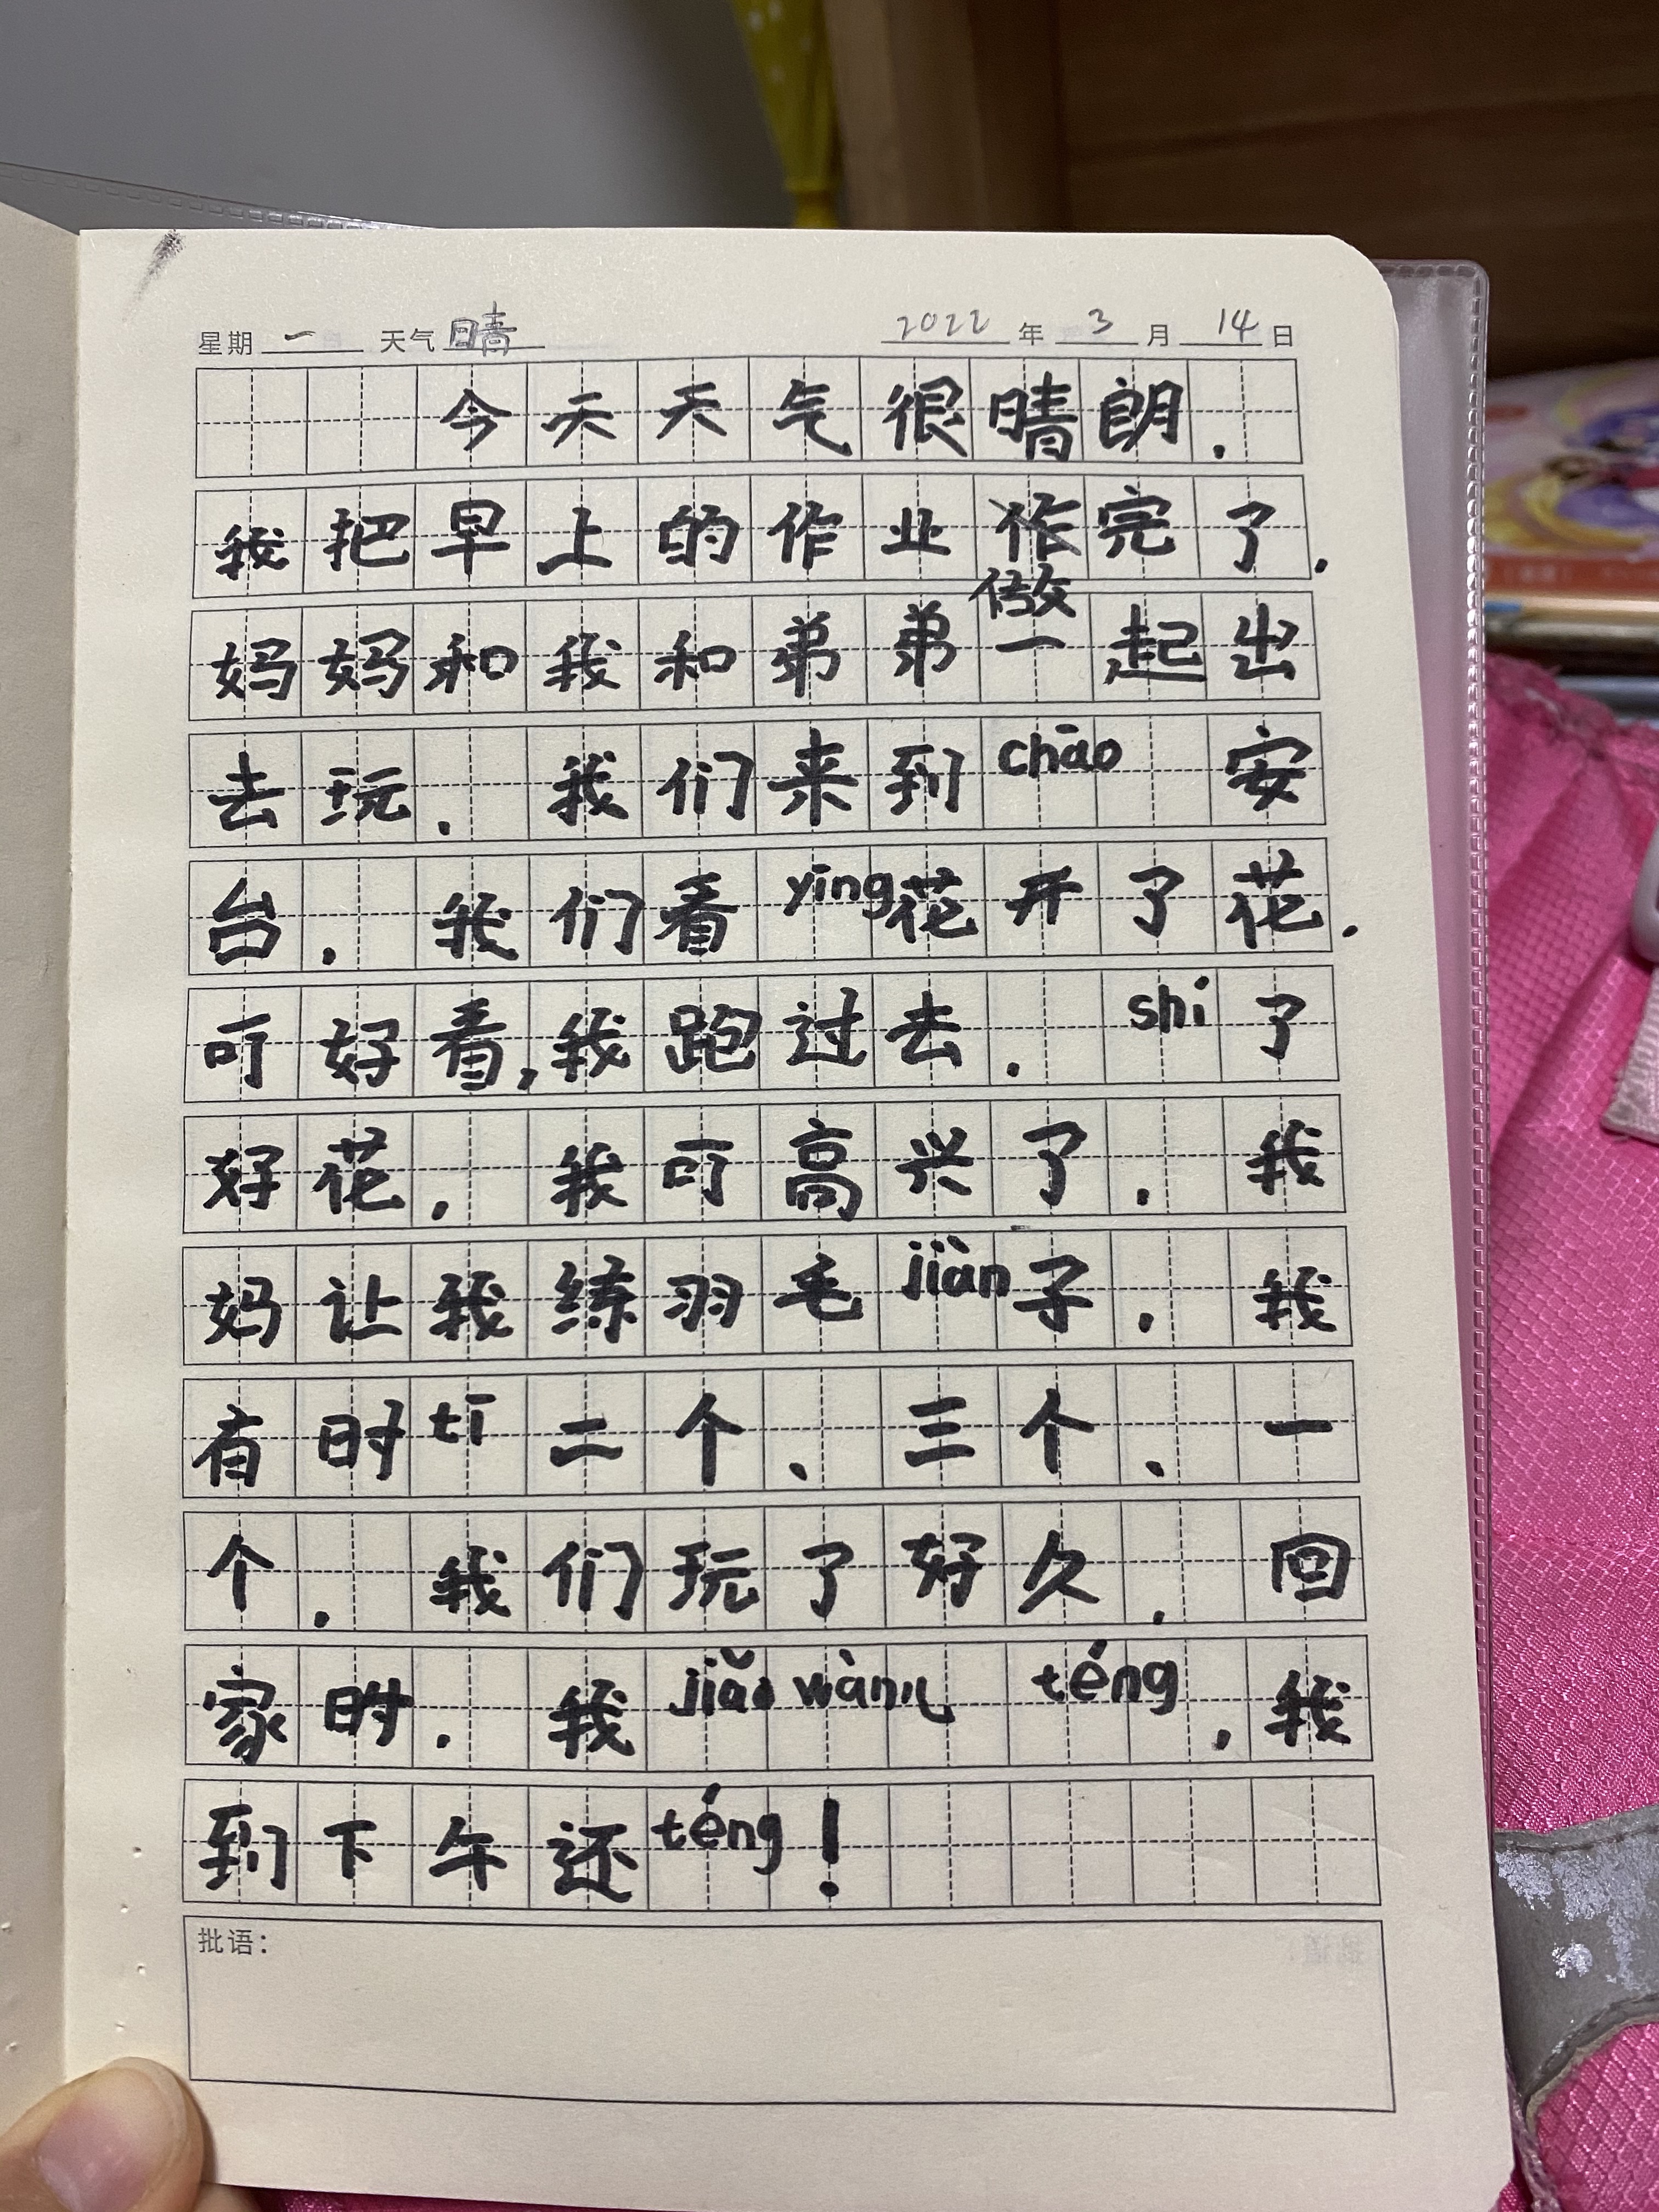 星期 一 天气 晴 2022 年 3 月 14 日
今天天气很晴朗.
我把早上的作业作完了.
做
妈妈和我和弟弟一起出
去玩. 我们来到chāo安
台. 我们看yīng花开了花.
可好看,我跑过去. shí了
好花. 我可高兴了. 我
妈让我练羽毛jiàn子. 我
有时tī二个、三个、一
个. 我们玩了好久. 回
家时. 我jiǎo wàn téng.我
到下午还téng!
批语: